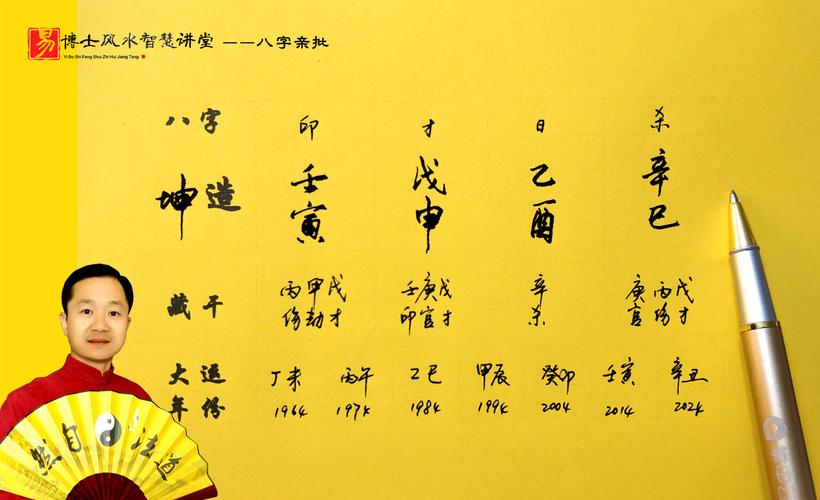 易 博士风水智慧讲堂 ——八字亲批
Yi Bo Shi Feng Shui Zhi Hui Jiang Tang
八字 卯 才 日 杀
坤造 壬 戊 乙 辛
寅 申 酉 巳
藏干 丙甲戊 壬庚戊 辛 庚丙戊
伤劫才 卯官才 杀 官伤才
大运 丁未 丙午 乙巳 甲辰 癸卯 壬寅 辛丑
年份 1964 1974 1984 1994 2004 2014 2024
然自法道